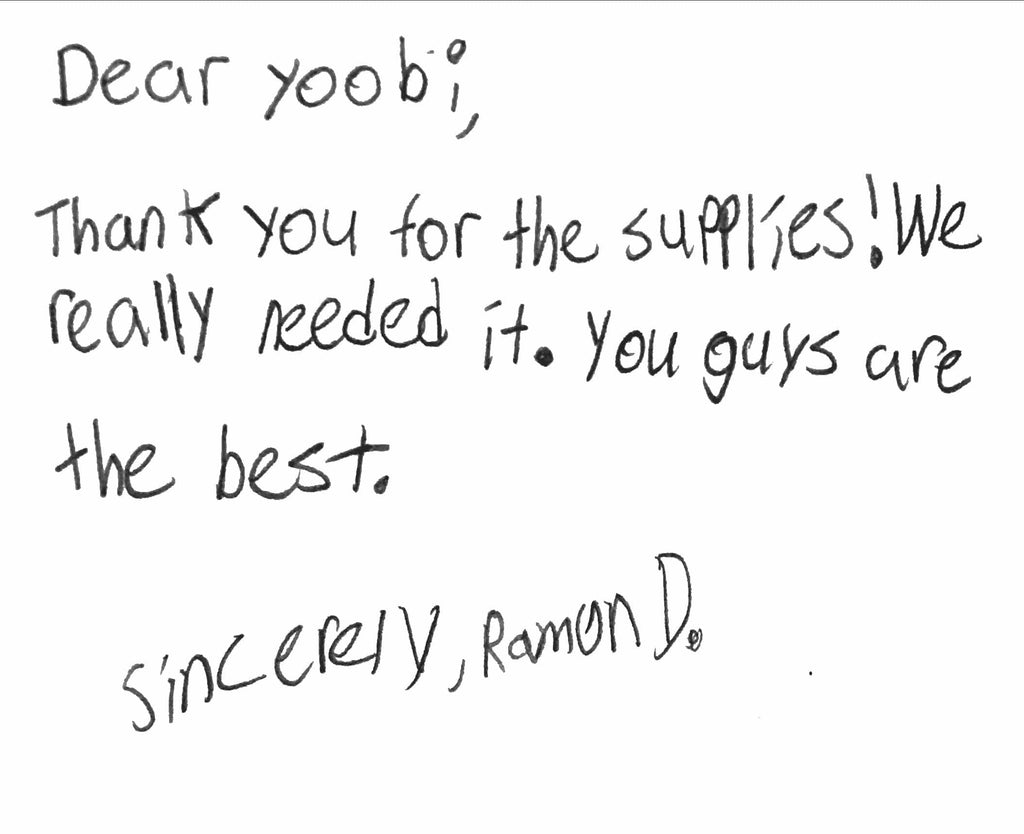 Dear yoobi,
Thank you for the supplies! We
really needed it. You guys are
the best.
Sincerely, Ramon D.